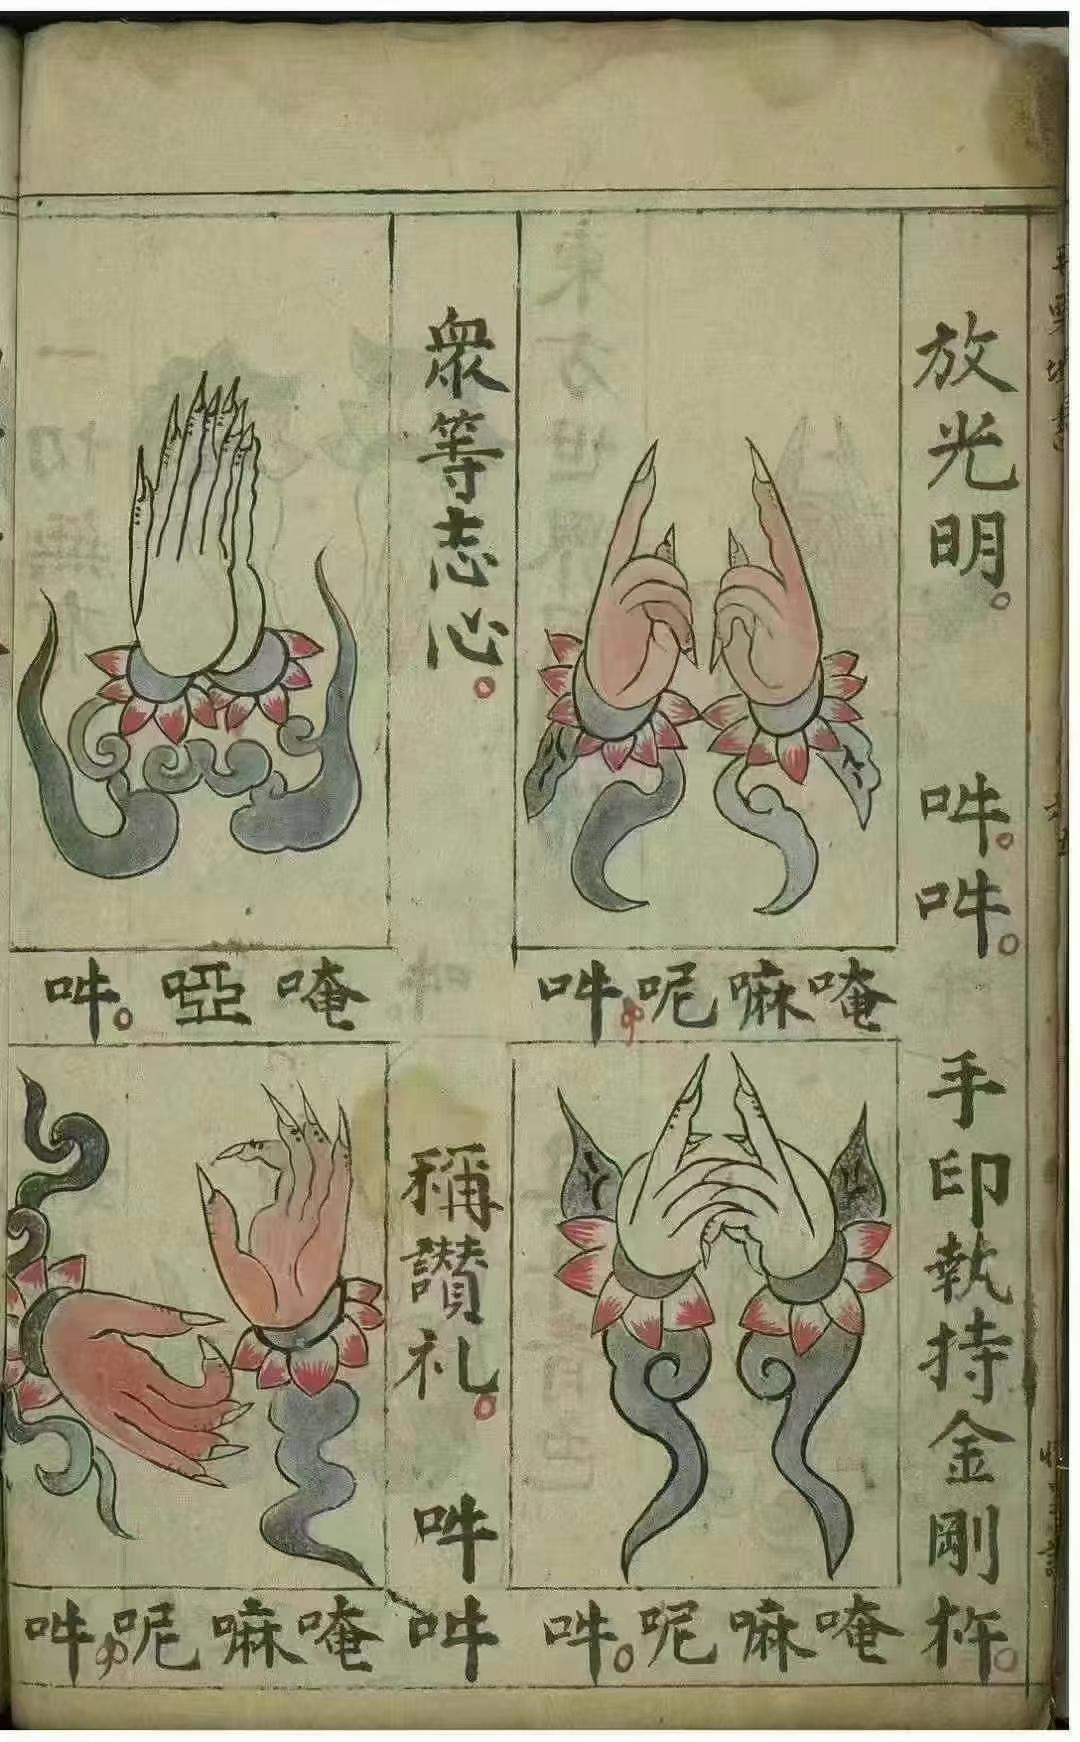 放光明。吽。吽。手印執持金剛杵。
唵嘛呢吽。
唵嘛呢吽。
衆等志心。稱讚礼。吽吽
唵啞吽。
唵嘛呢吽。